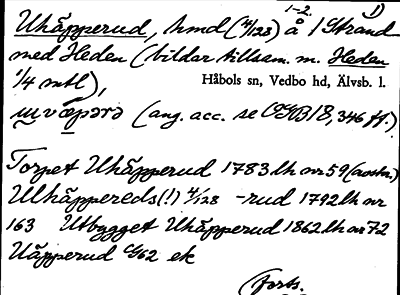 1-2. 1)
Uhäpperud, hmd (4/128) å /Strand
med Heden (bildar tillsam. m. Heden
1/4 mtl),
Håbols sn, Vedbo hd, Älvsb. l.
(ang. acc. se OGB 18, 346 ff.)
Torpet Uhäpperud 1783 lh nr 59 (avsön.)
Ulhäppereds(!) 4/128 -rud 1792 lh nr
163 Utbygget Uhäpperud 1862 lh nr 72
Uäpperud 62 ek
(Forts.